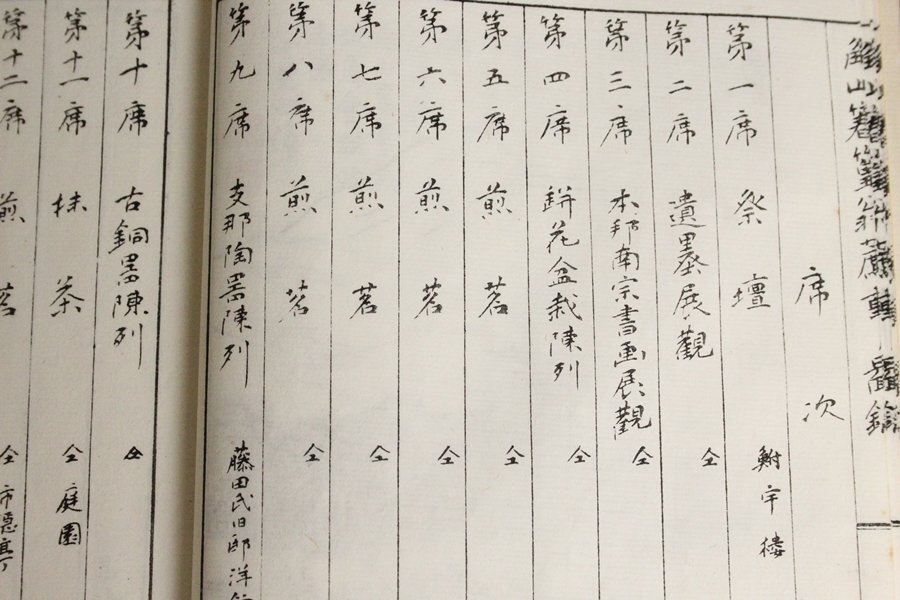 席次
第一席 祭壇 鮒宇楼
第二席 遺墨展觀 仝
第三席 本邦南宗書画展觀 仝
第四席 鉼花盆栽陳列 仝
第五席 煎茗 仝
第六席 煎茗 仝
第七席 煎茗 仝
第八席 煎茗 仝
第九席 支那陶器陳列 藤田氏旧邸洋
第十席 古銅器陳列 仝
第十一席 抹茶 仝庭園
第十二席 煎茗 仝市